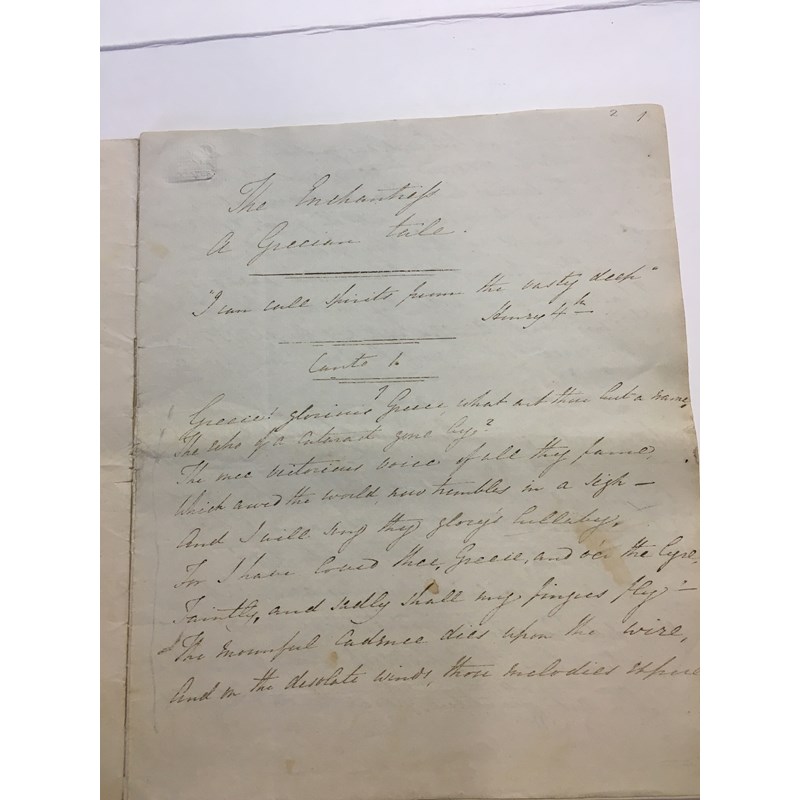 2 1
The Enchantress
A Grecian tale.
"I can call spirits from the vasty deep"
Henry 4th
Canto 1
Greece! glorious Greece, what art thou but a name,
The echo of a cataract gone by?
The once victorious voice of all thy fame,
Which awed the world, now trembles in a sigh —
And I will sing thy glory's lullaby,
For I have loved thee, Greece, and o'er the lyre,
Faintly, and sadly shall my fingers fly —
The mournful cadence dies upon the wire,
And on the desolate winds, those melodies expire